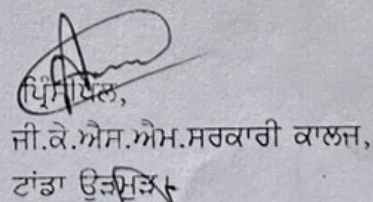 ਪ੍ਰਿੰਸੀਪਲ,
ਜੀ.ਕੇ.ਐਸ.ਐਮ.ਸਰਕਾਰੀ ਕਾਲਜ,
ਟਾਂਡਾ ਉੜਮੁੜ